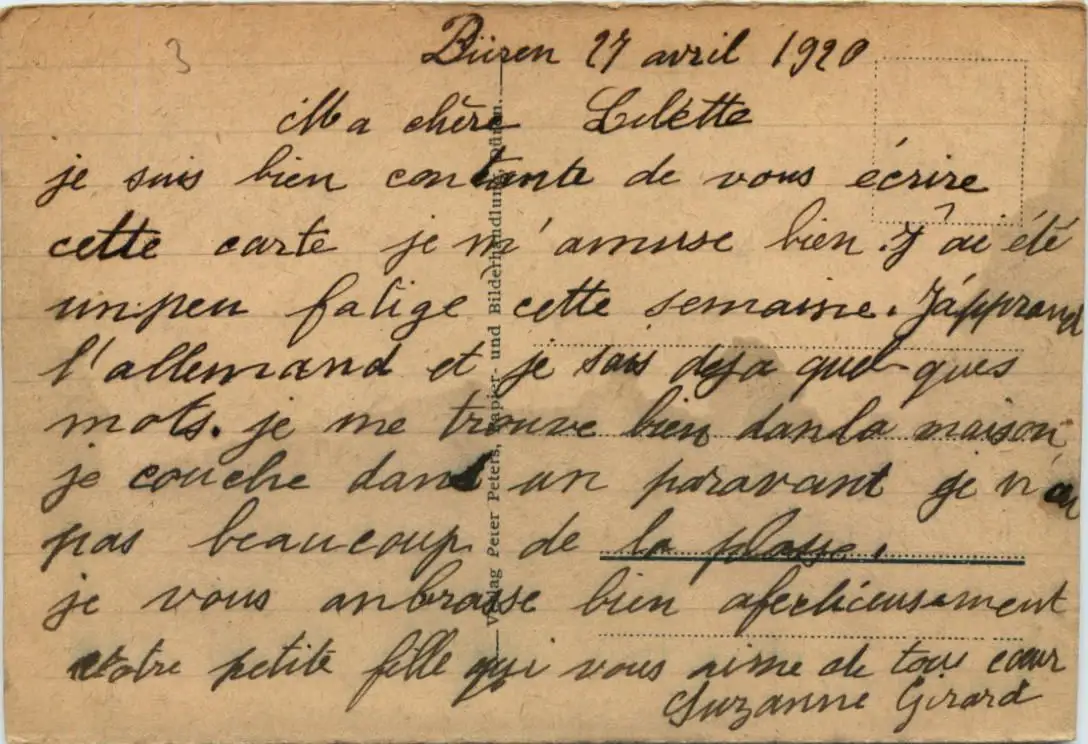 3
Düren 27 avril 1920
Ma chère Lilétte
je suis bien contante de vous écrire
cette carte je m'amuse bien. J'ai été
un peu fatige cette semaine. J'apprend
l'allemand et je sais deja quel-ques
mots. je me trouve bien dans la maison
je couche dans un paravant je n'ai
pas beaucoup de la plasse.
je vous anbrasse bien
votre petite fille qui vous aime de tout cœur
Suzanne Girard
Verlag Peter Peters, Papier- und Bilderhandlung, Düren.